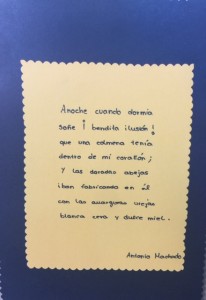 Anoche cuando dormía
soñe ¡ bendita ilusión !
que una colmena tenía
dentro de mi corazón;
y las doradas abejas
iban fabricando en él
con las amarguras viejas
blanca cera y dulce miel.
Antonio Machado